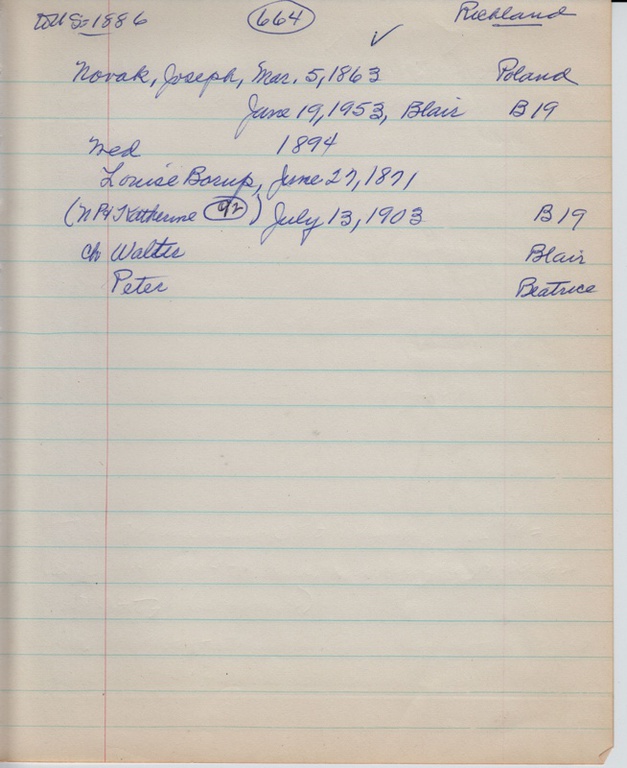 So 1886 664 Richland
✓
Novak, Joseph, Mar. 5, 1863 Poland
June 19, 1953, Blair B19
Med 1894
Louise Borup, June 27, 1871
(NP4 Katherine 92) July 13, 1903 B19
ch Walter Blair
Peter Beatrice